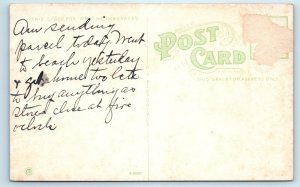 THIS SPACE FOR
Am sending
parcel today. Went
to beach yesterday
& got home too late
to buy anything as
stores close at five
oclock
POST
CARD
THIS SPACE FOR ADDRESS ONLY